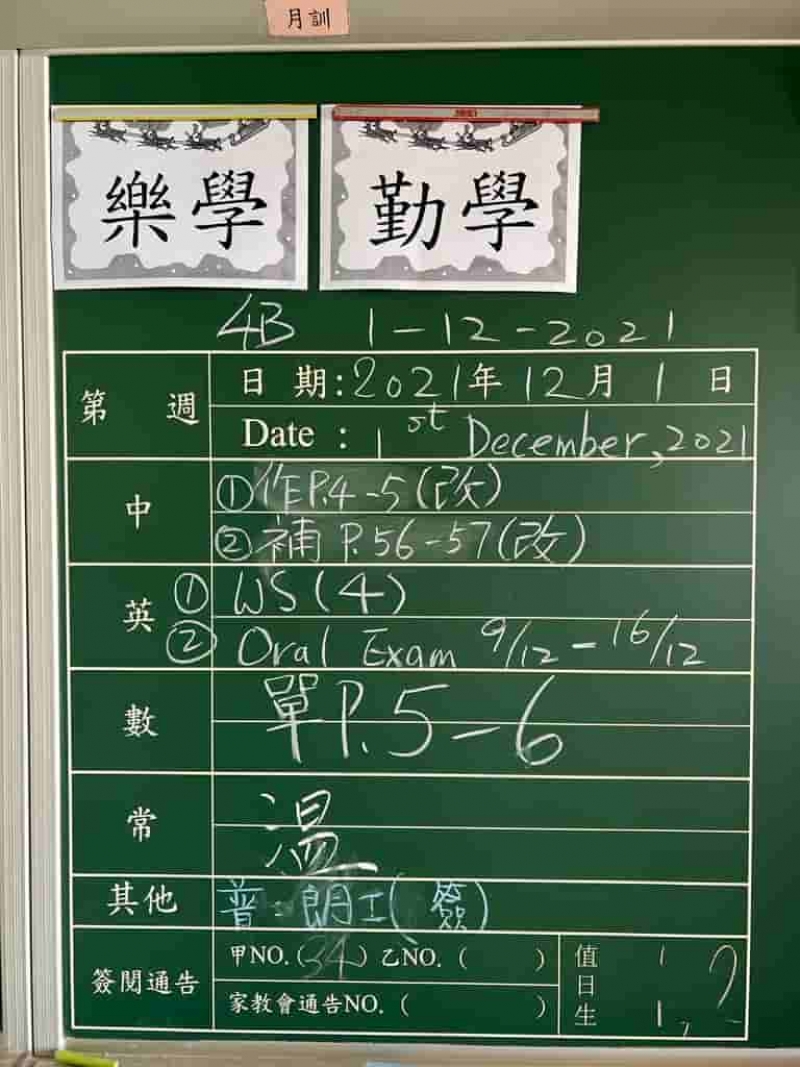 月訓
樂學 勤學
4B 1-12-2021
第 週
日 期:2021年12月1日
Date : 1st December, 2021
中
①作P.4-5(改)
②補 P.56-57(改)
英
① WS(4)
② Oral Exam 9/12 - 16/12
數
單P.5-6
常
溫
其他
普:朗工(簽)
簽閱通告
甲NO.(34) 乙NO.( )
家教會通告NO.( )
值日生